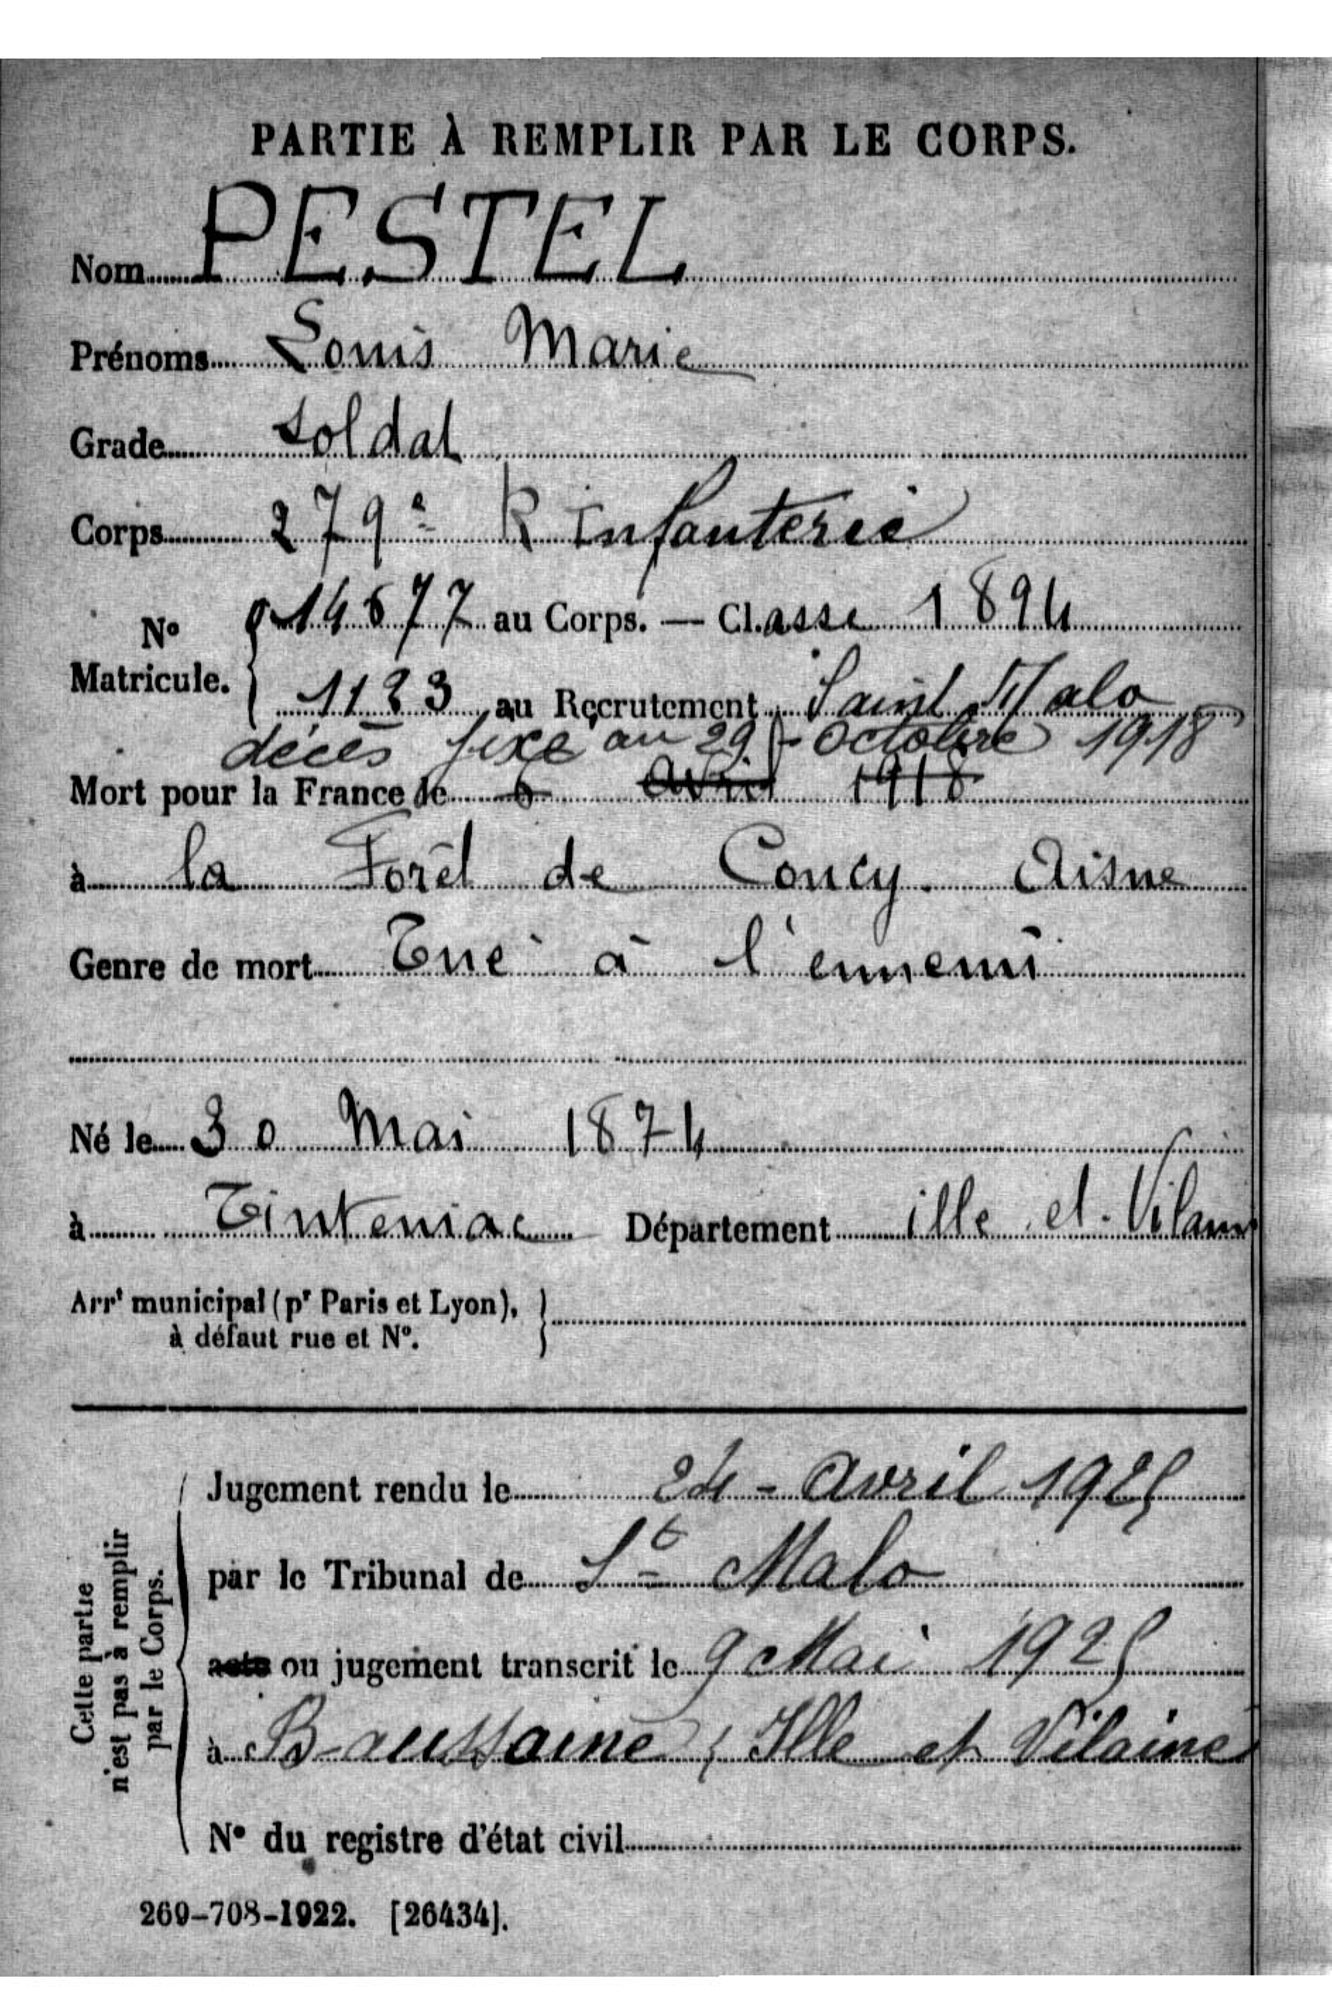 PARTIE À REMPLIR PAR LE CORPS.
Nom PESTEL
Prénoms Louis Marie
Grade soldat
Corps 279e R Infanterie
N° Matricule. 14577 au Corps. — Cl.asse 1894
1123 au Recrutement Saint Malo
décès fixé au 29 octobre 1918
Mort pour la France le 6 avril 1918
à la Forêt de Coucy. Aisne
Genre de mort Tué à l'ennemi
Né le 30 Mai 1874
à Tinteniac Département ille et Vilaine
Arrt municipal (pr Paris et Lyon),
à défaut rue et N°.
Cette partie
n'est pas à remplir
par le Corps.
Jugement rendu le 24 - avril 1925
par le Tribunal de St Malo
acte ou jugement transcrit le 9 Mai 1925
à Baussaine, Ille et Vilaine
N° du registre d'état civil
269-708-1922. [26434].